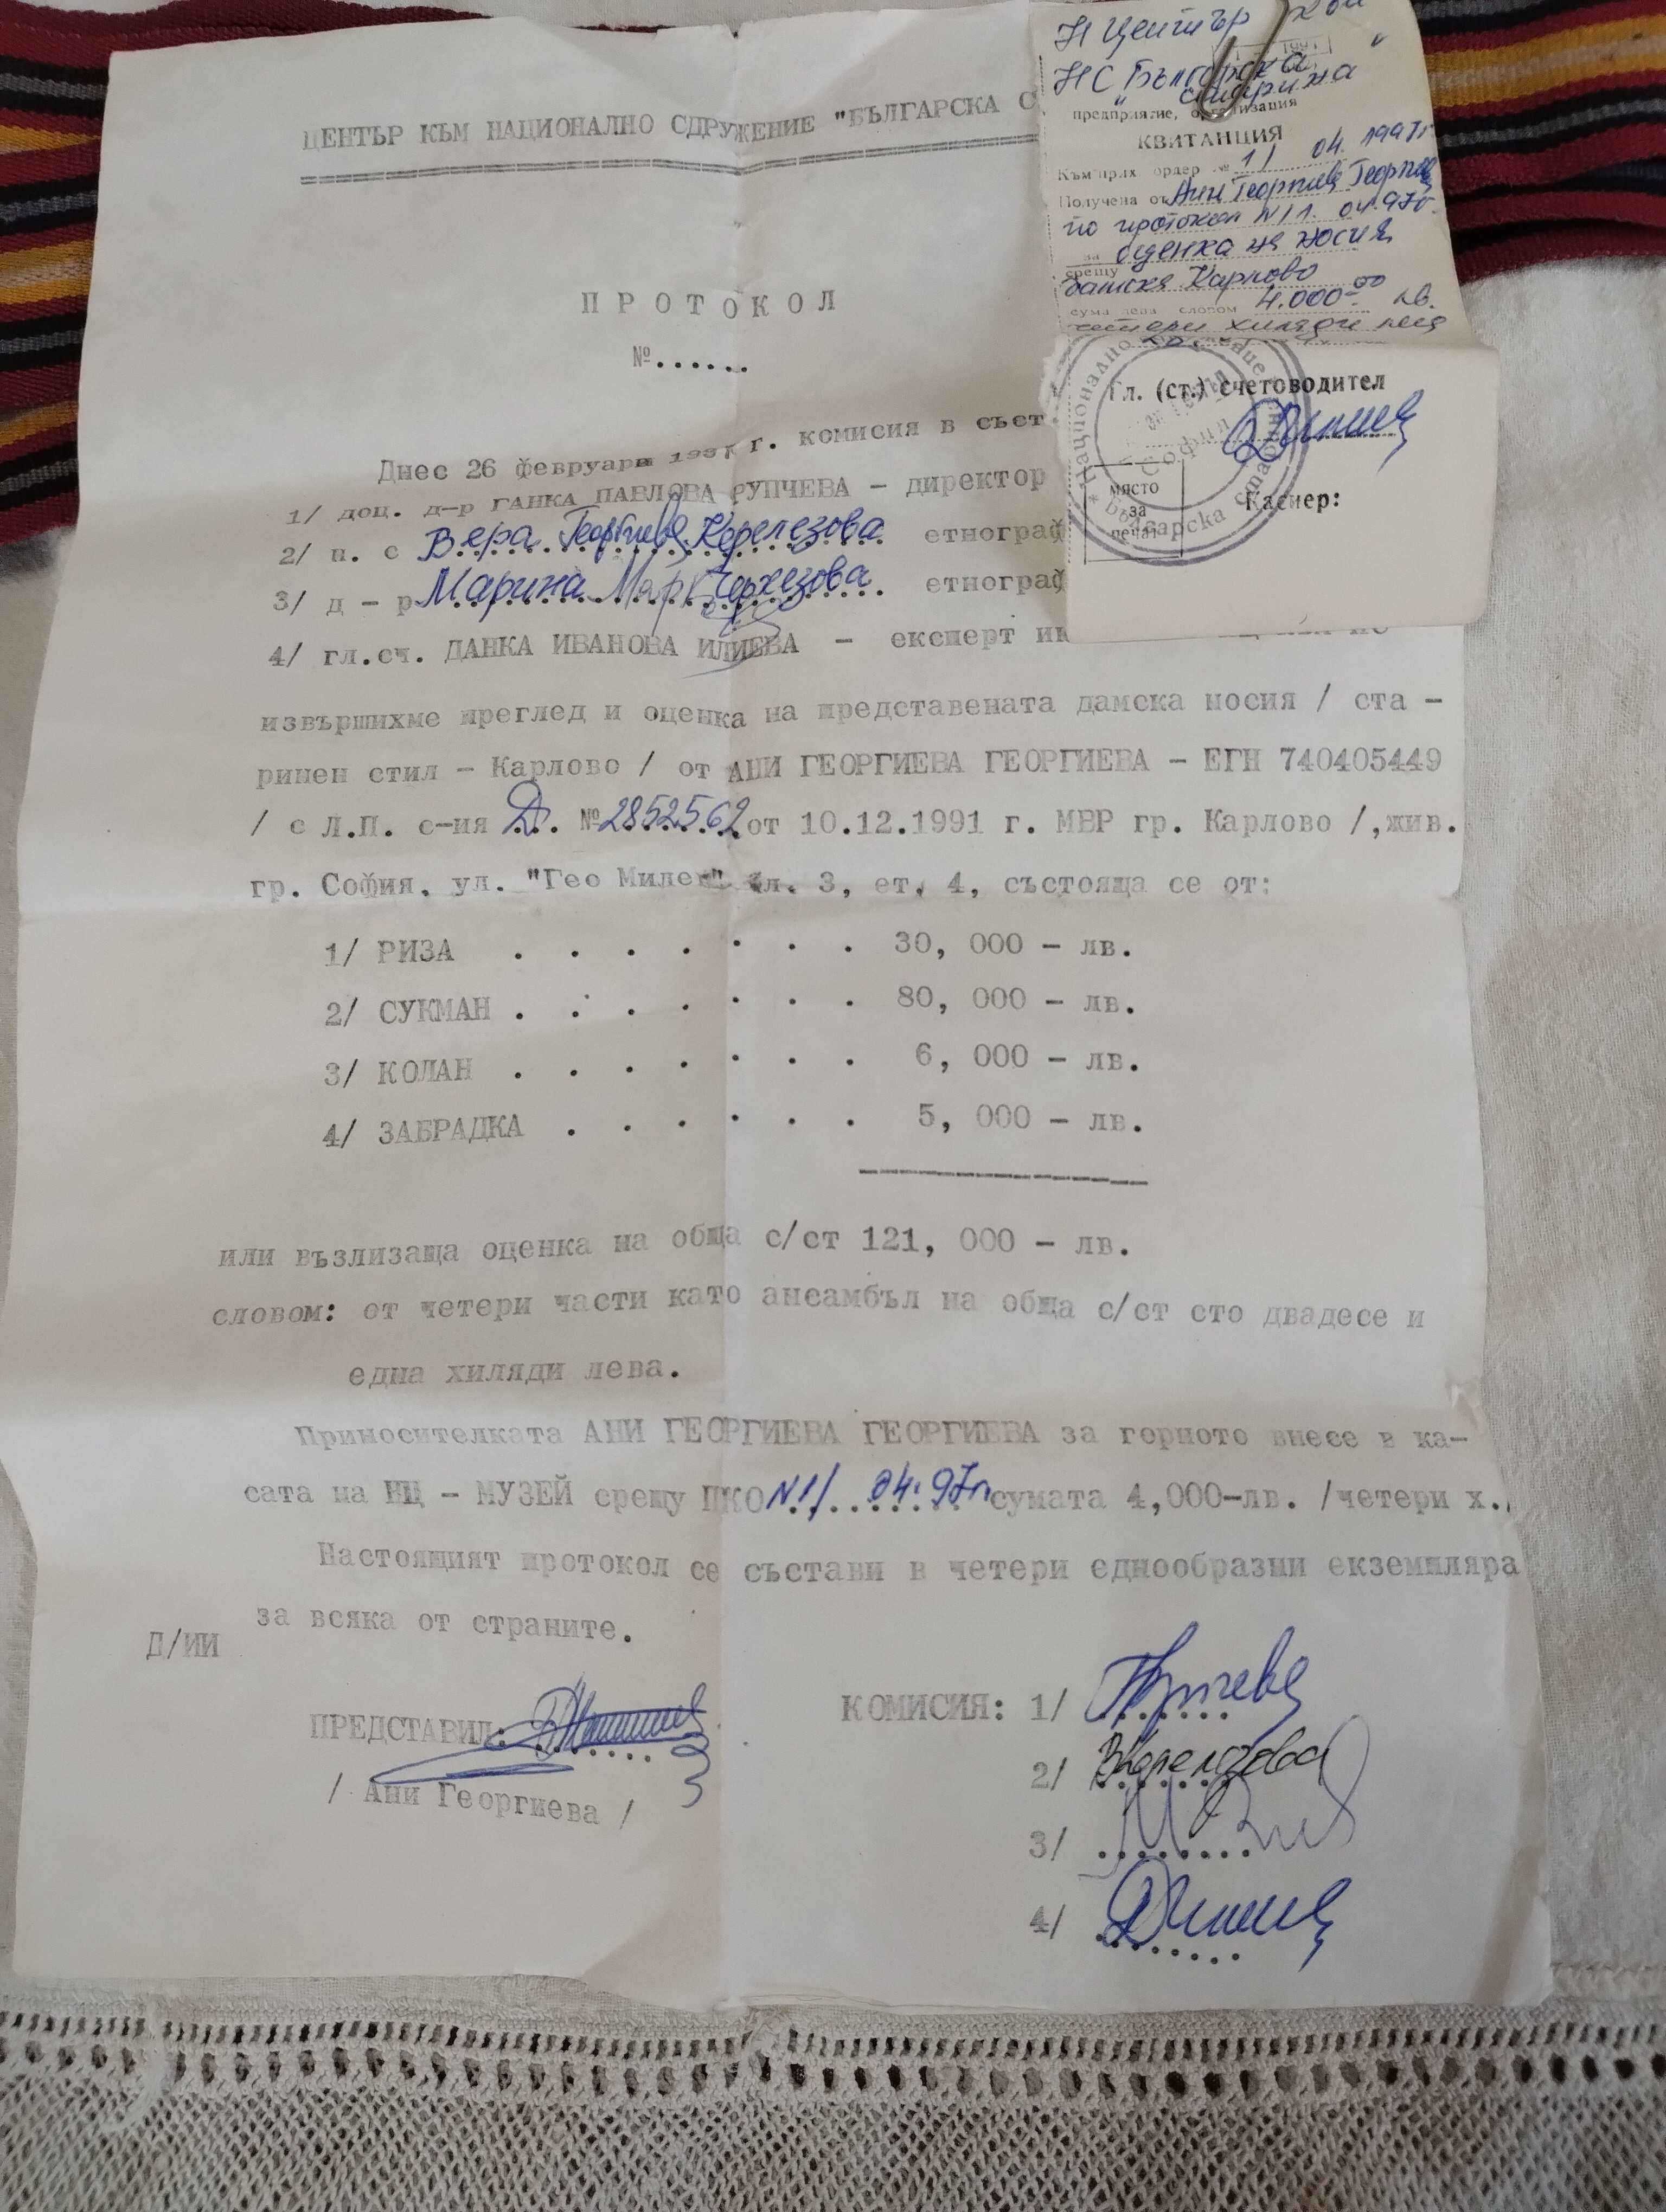 ЦЕНТЪР КЪМ НАЦИОНАЛНО СДРУЖЕНИЕ "БЪЛГАРСКА С
ПРОТОКОЛ
№......
Днес 26 февруари 1997 г. комисия в със
1/ доц. д-р ГАНКА ПАВЛОВА РУПЧЕВА - директор
2/ н. с Вера Георгиева Корелезова етнограф
3/ д - р Марина Марк Черкезова етнограф
4/ гл.сч. ДАНКА ИВАНОВА ИЛИЕВА - експерт ик
извършихме преглед и оценка на представената дамска носия / ста -
ринен стил - Карлово / от АНИ ГЕОРГИЕВА ГЕОРГИЕВА - ЕГН 740405449
/ с Л.П. с-ия Д. №2852562 от 10.12.1991 г. МВР гр. Карлово /,жив.
гр. София, ул. "Гео Милев" бл. 3, ет. 4, състояща се от:
1/ РИЗА . . . . . . . 30, 000 - лв.
2/ СУКМАН . . . . . . . 80, 000 - лв.
3/ КОЛАН . . . . . . . 6, 000 - лв.
4/ ЗАБРАДКА . . . . . . 5, 000 - лв.
или възлизаща оценка на обща с/ст 121, 000 - лв.
словом: от четери части като ансамбъл на обща с/ст сто двадесе и
една хиляди лева.
Приносителката АНИ ГЕОРГИЕВА ГЕОРГИЕВА за горното внесе в ка-
сата на НЦ - МУЗЕЙ срещу ПКО N1/ 04. 97г сумата 4,000-лв. /четери х.
Настоящият протокол се състави в четери еднообразни екземпляра
за всяка от страните.
Д/ИИ
ПРЕДСТАВИЛ:
/ Ани Георгиева /
КОМИСИЯ: 1/
2/
3/
4/
Н Център към
НС "Българска
старина"
предприятие, организация
КВИТАНЦИЯ
Към прих ордер № 1/ 04. 1997г
Получена от Ани Георгиева Георгиева
по протокол N1 1. 04.97г.
за оценка на носия
срещу
дамска Карлово
4.000-00 лв.
сума лева словом
четери хиляди лева
Гл. (ст.) счетоводител
място
за
печат
Касиер:
* Национално сдружение * Българска старина
София